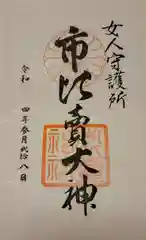 女人守護所
市比賣大神
令和
四年叄月弐拾八日